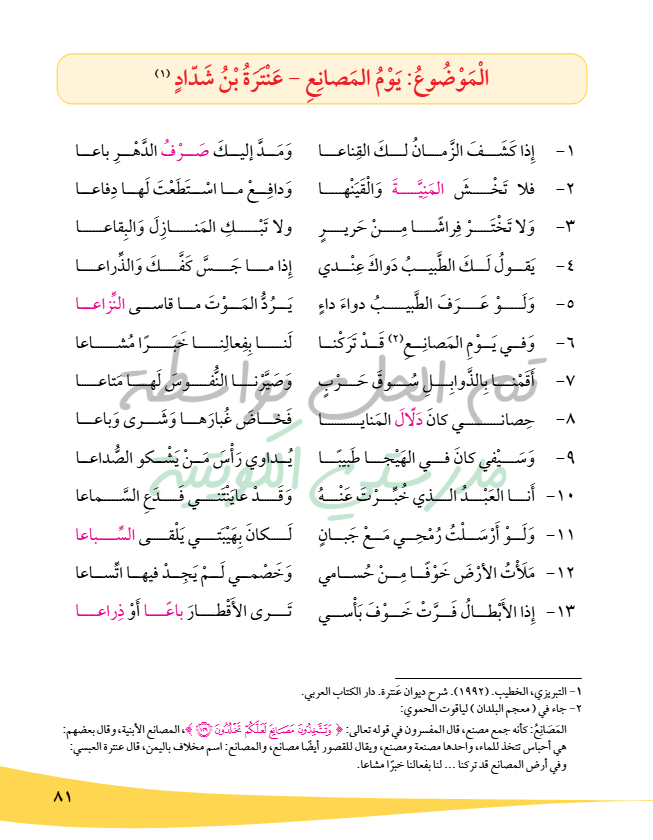 الْمَوْضُوعُ: يَوْمُ المَصانِعِ – عَنْتَرَةُ بْنُ شَدّادٍ (١)
١- إِذا كَشَـفَ الزَّمـانُ لـكَ القِناعـا وَمَـدَّ إليـكَ صَـرْفُ الدَّهْـرِ باعـا
٢- فلا تَخْـشَ المَنِيَّـةَ وَالْقَيَنْهـا وَدافِـعْ مـا اسْـتَطَعْتَ لَهـا دِفاعـا
٣- وَلا تَخْتَـرْ فِراشًـا مِـنْ حَريـرٍ ولا تَبْـكِ المَنـازِلَ وَالبِقاعـا
٤- يَقـولُ لَـكَ الطَّبيـبُ دَواكَ عِنْـدي إذا مـا جَـسَّ كَفَّـكَ وَالذِّراعـا
٥- وَلَـوْ عَـرَفَ الطَّبيـبُ دواءَ داءٍ يَـرُدُّ المَـوْتَ مـا قاسـى النِّزاعـا
٦- وَفـي يَـوْمِ المَصانِـعِ(٢) قَـدْ تَرَكْنـا لَنـا بِفِعالِنـا خَبَـرًا مُشـاعا
٧- أَقَمْنـا بِالذَّوابِـلِ سُـوقَ حَـرْبٍ وَصَيَّرْنـا النُّفـوسَ لَهـا مَتاعـا
٨- حِصانـي كانَ دَلّالَ المَنايـا فَخـاضَ غُبارَهـا وَشَـرى وَباعـا
٩- وَسَـيْفي كانَ فـي الهَيْجـا طَبيبًـا يُـداوي رَأْسَ مَـنْ يَشْـكو الصُّداعـا
١٠- أَنـا العَبْـدُ الـذي خُبِّـرْتَ عَنْـهُ وَقَـدْ عايَنْتَنـي فَـدَعِ السَّـماعا
١١- وَلَـوْ أَرْسَـلْتُ رُمْحِـي مَـعْ جَبـانٍ لَـكانَ بِهَيْبَتـي يَلْقـى السِّـباعا
١٢- مَـلَأْتُ الأرْضَ خَوْفًـا مِـنْ حُسـامي وَخَصْمـي لَـمْ يَجِـدْ فيهـا اتِّسـاعا
١٣- إِذا الأَبْطـالُ فَـرَّتْ خَـوْفَ بَأْسـي تَـرى الأَقْطـارَ باعًـا أَوْ ذِراعـا
تم التحميل بواسطة
مدرستي الكويتية
١- التبريزي، الخطيب. (١٩٩٢). شرح ديوان عَنترة. دار الكتاب العربي.
٢- جاء في ( معجم البلدان ) لياقوت الحموي:
المَصَانِعُ: كأنه جمع مصنع، قال المفسرون في قوله تعالى: ﴿ وَتَتَّخِذُونَ مَصَانِعَ لَعَلَّكُمْ تَخْلُدُونَ ١٢٩ ﴾، المصانع الأبنية، وقال بعضهم:
هي أحباس تتخذ للماء، واحدها مصنعة ومصنع، ويقال للقصور أيضًا مصانع، والمصانع: اسم مخلاف باليمن، قال عنترة العبسي:
وفي أرض المصانع قد تركنا ... لنا بفعالنا خبرًا مشاعا.
٨١